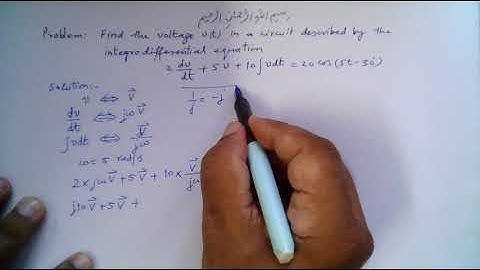 بسم الله الرحمن الرحيم
Problem: Find the voltage v(t) in a circuit described by the
integrodifferential equation
2 dv/dt + 5v + 10∫vdt = 20 cos(5t-30°)
Solution:-
v ⇔ V⃗
1/j = -j
dv/dt ⇔ jωV⃗
∫vdt ⇔ V⃗/jω
ω = 5 rad/s
2×jωV⃗ + 5V⃗ + 10×V⃗/jω
j10V⃗ + 5V⃗ +